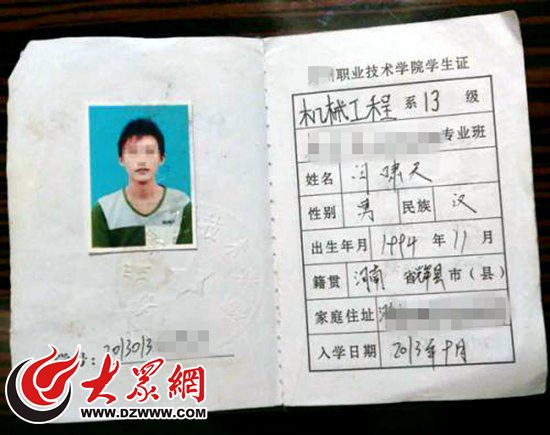 州职业技术学院学生证
机械工程 系 13 级
专业班
姓名 闫啸天
性别 男 民族 汉
出生年月 1994 年 11 月
籍贯 河南 省辉县市（县）
家庭住址
入学日期 2013年十月
号：2013013
大众網
WWW.DZWWW.COM